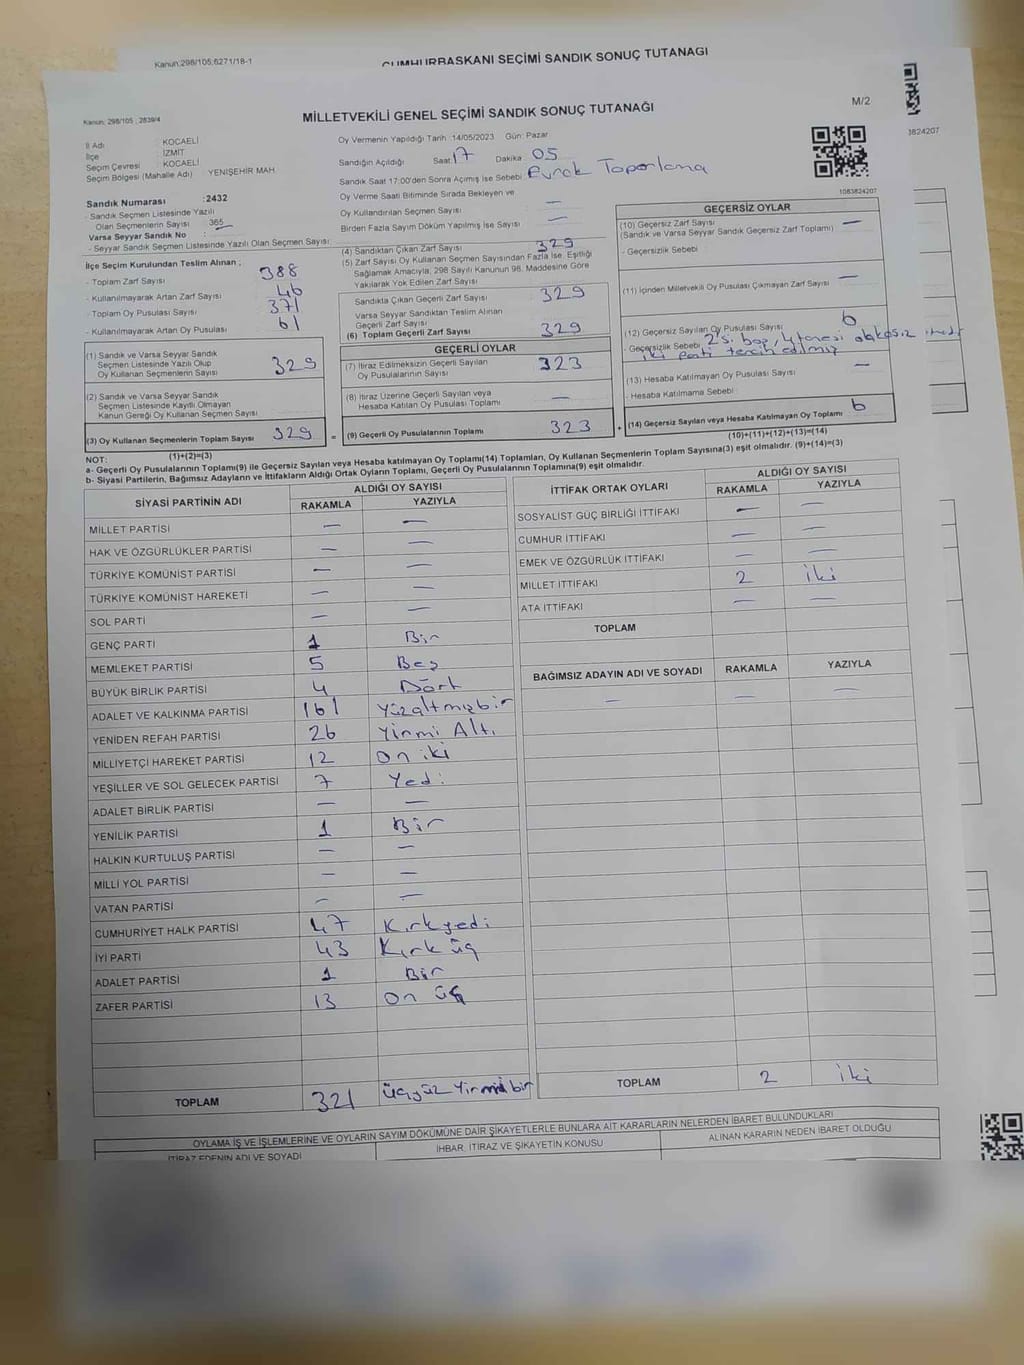 Kanun:298/105,6271/18-1
CUMHURBAŞKANI SEÇİMİ SANDIK SONUÇ TUTANAĞI
Kanun: 298/105 ; 2839/4
MİLLETVEKİLİ GENEL SEÇİMİ SANDIK SONUÇ TUTANAĞI
M/2
3824207
İl Adı : KOCAELİ
İlçe : İZMİT
Seçim Çevresi : KOCAELİ
Seçim Bölgesi (Mahalle Adı) : YENİŞEHİR MAH.
Oy Vermenin Yapıldığı Tarih :14/05/2023 Gün: Pazar
Sandığın Açıldığı Saat 17 Dakika 05
Sandık Saat 17:00'den Sonra Açılmış İse Sebebi : Evrak Toparlama
Oy Verme Saati Bitiminde Sırada Bekleyen ve
Oy Kullandırılan Seçmen Sayısı —
Birden Fazla Sayım Döküm Yapılmış İse Sayısı : —
1083824207
Sandık Numarası :2432
- Sandık Seçmen Listesinde Yazılı
Olan Seçmenlerin Sayısı : 365
Varsa Seyyar Sandık No :
- Seyyar Sandık Seçmen Listesinde Yazılı Olan Seçmen Sayısı:
İlçe Seçim Kurulundan Teslim Alınan ;
- Toplam Zarf Sayısı 388
- Kullanılmayarak Artan Zarf Sayısı : 46
- Toplam Oy Pusulası Sayısı 371
- Kullanılmayarak Artan Oy Pusulası 61
(1) Sandık ve Varsa Seyyar Sandık
Seçmen Listesinde Yazılı Olup
Oy Kullanan Seçmenlerin Sayısı 329
(2) Sandık ve Varsa Seyyar Sandık
Seçmen Listesinde Kayıtlı Olmayan
Kanun Gereği Oy Kullanan Seçmen Sayısı
(3) Oy Kullanan Seçmenlerin Toplam Sayısı 329
(1)+(2)=(3)
(4) Sandıktan Çıkan Zarf Sayısı 329
(5) Zarf Sayısı Oy Kullanan Seçmen Sayısından Fazla İse, Eşitliği
Sağlamak Amacıyla, 298 Sayılı Kanunun 98. Maddesine Göre
Yakılarak Yok Edilen Zarf Sayısı
Sandıkla Çıkan Geçerli Zarf Sayısı 329
Varsa Seyyar Sandıktan Teslim Alınan
Geçerli Zarf Sayısı
(6) Toplam Geçerli Zarf Sayısı 329
GEÇERLİ OYLAR
(7) İtiraz Edilmeksizin Geçerli Sayılan
Oy Pusulalarının Sayısı 323
(8) İtiraz Üzerine Geçerli Sayılan veya
Hesaba Katılan Oy Pusulası Toplamı —
= (9) Geçerli Oy Pusulalarının Toplamı 323 +
GEÇERSİZ OYLAR
(10) Geçersiz Zarf Sayısı
(Sandık ve Varsa Seyyar Sandık Geçersiz Zarf Toplamı) —
- Geçersizlik Sebebi :
(11) İçinden Milletvekili Oy Pusulası Çıkmayan Zarf Sayısı —
(12) Geçersiz Sayılan Oy Pusulası Sayısı 6
Geçersizlik Sebebi : 2'si boş, 4 tanesi
iki parti tercih edilmiş
(13) Hesaba Katılmayan Oy Pusulası Sayısı —
- Hesaba Katılmama Sebebi :
(14) Geçersiz Sayılan veya Hesaba Katılmayan Oy Toplamı 6
(10)+(11)+(12)+(13)=(14)
NOT:
a- Geçerli Oy Pusulalarının Toplamı(9) ile Geçersiz Sayılan veya Hesaba katılmayan Oy Toplamı(14) Toplamları, Oy Kullanan Seçmenlerin Toplam Sayısına(3) eşit olmalıdır. (9)+(14)=(3)
b- Siyasi Partilerin, Bağımsız Adayların ve İttifakların Aldığı Ortak Oyların Toplamı, Geçerli Oy Pusulalarının Toplamına(9) eşit olmalıdır.
SİYASİ PARTİNİN ADI
ALDIĞI OY SAYISI
RAKAMLA YAZIYLA
MİLLET PARTİSİ — —
HAK VE ÖZGÜRLÜKLER PARTİSİ — —
TÜRKİYE KOMÜNİST PARTİSİ — —
TÜRKİYE KOMÜNİST HAREKETİ — —
SOL PARTİ — —
GENÇ PARTİ 1 Bir
MEMLEKET PARTİSİ 5 Beş
BÜYÜK BİRLİK PARTİSİ 4 Dört
ADALET VE KALKINMA PARTİSİ 161 Yüzaltmışbir
YENİDEN REFAH PARTİSİ 26 Yirmi Altı
MİLLİYETÇİ HAREKET PARTİSİ 12 On iki
YEŞİLLER VE SOL GELECEK PARTİSİ 7 Yedi
ADALET BİRLİK PARTİSİ — —
YENİLİK PARTİSİ 1 Bir
HALKIN KURTULUŞ PARTİSİ — —
MİLLİ YOL PARTİSİ — —
VATAN PARTİSİ — —
CUMHURİYET HALK PARTİSİ 47 Kırkyedi
İYİ PARTİ 43 Kırk üç
ADALET PARTİSİ 1 Bir
ZAFER PARTİSİ 13 On üç
TOPLAM 321 üçyüz Yirmi bir
İTTİFAK ORTAK OYLARI
ALDIĞI OY SAYISI
RAKAMLA YAZIYLA
SOSYALİST GÜÇ BİRLİĞİ İTTİFAKI — —
CUMHUR İTTİFAKI — —
EMEK VE ÖZGÜRLÜK İTTİFAKI — —
MİLLET İTTİFAKI 2 iki
ATA İTTİFAKI — —
TOPLAM
BAĞIMSIZ ADAYIN ADI VE SOYADI RAKAMLA YAZIYLA
— — —
TOPLAM 2 iki
OYLAMA İŞ VE İŞLEMLERİNE VE OYLARIN SAYIM DÖKÜMÜNE DAİR ŞİKAYETLERLE BUNLARA AİT KARARLARIN NELERDEN İBARET BULUNDUKLARI
İTİRAZ EDENİN ADI VE SOYADI
İHBAR, İTİRAZ VE ŞİKAYETİN KONUSU
ALINAN KARARIN NEDEN İBARET OLDUĞU